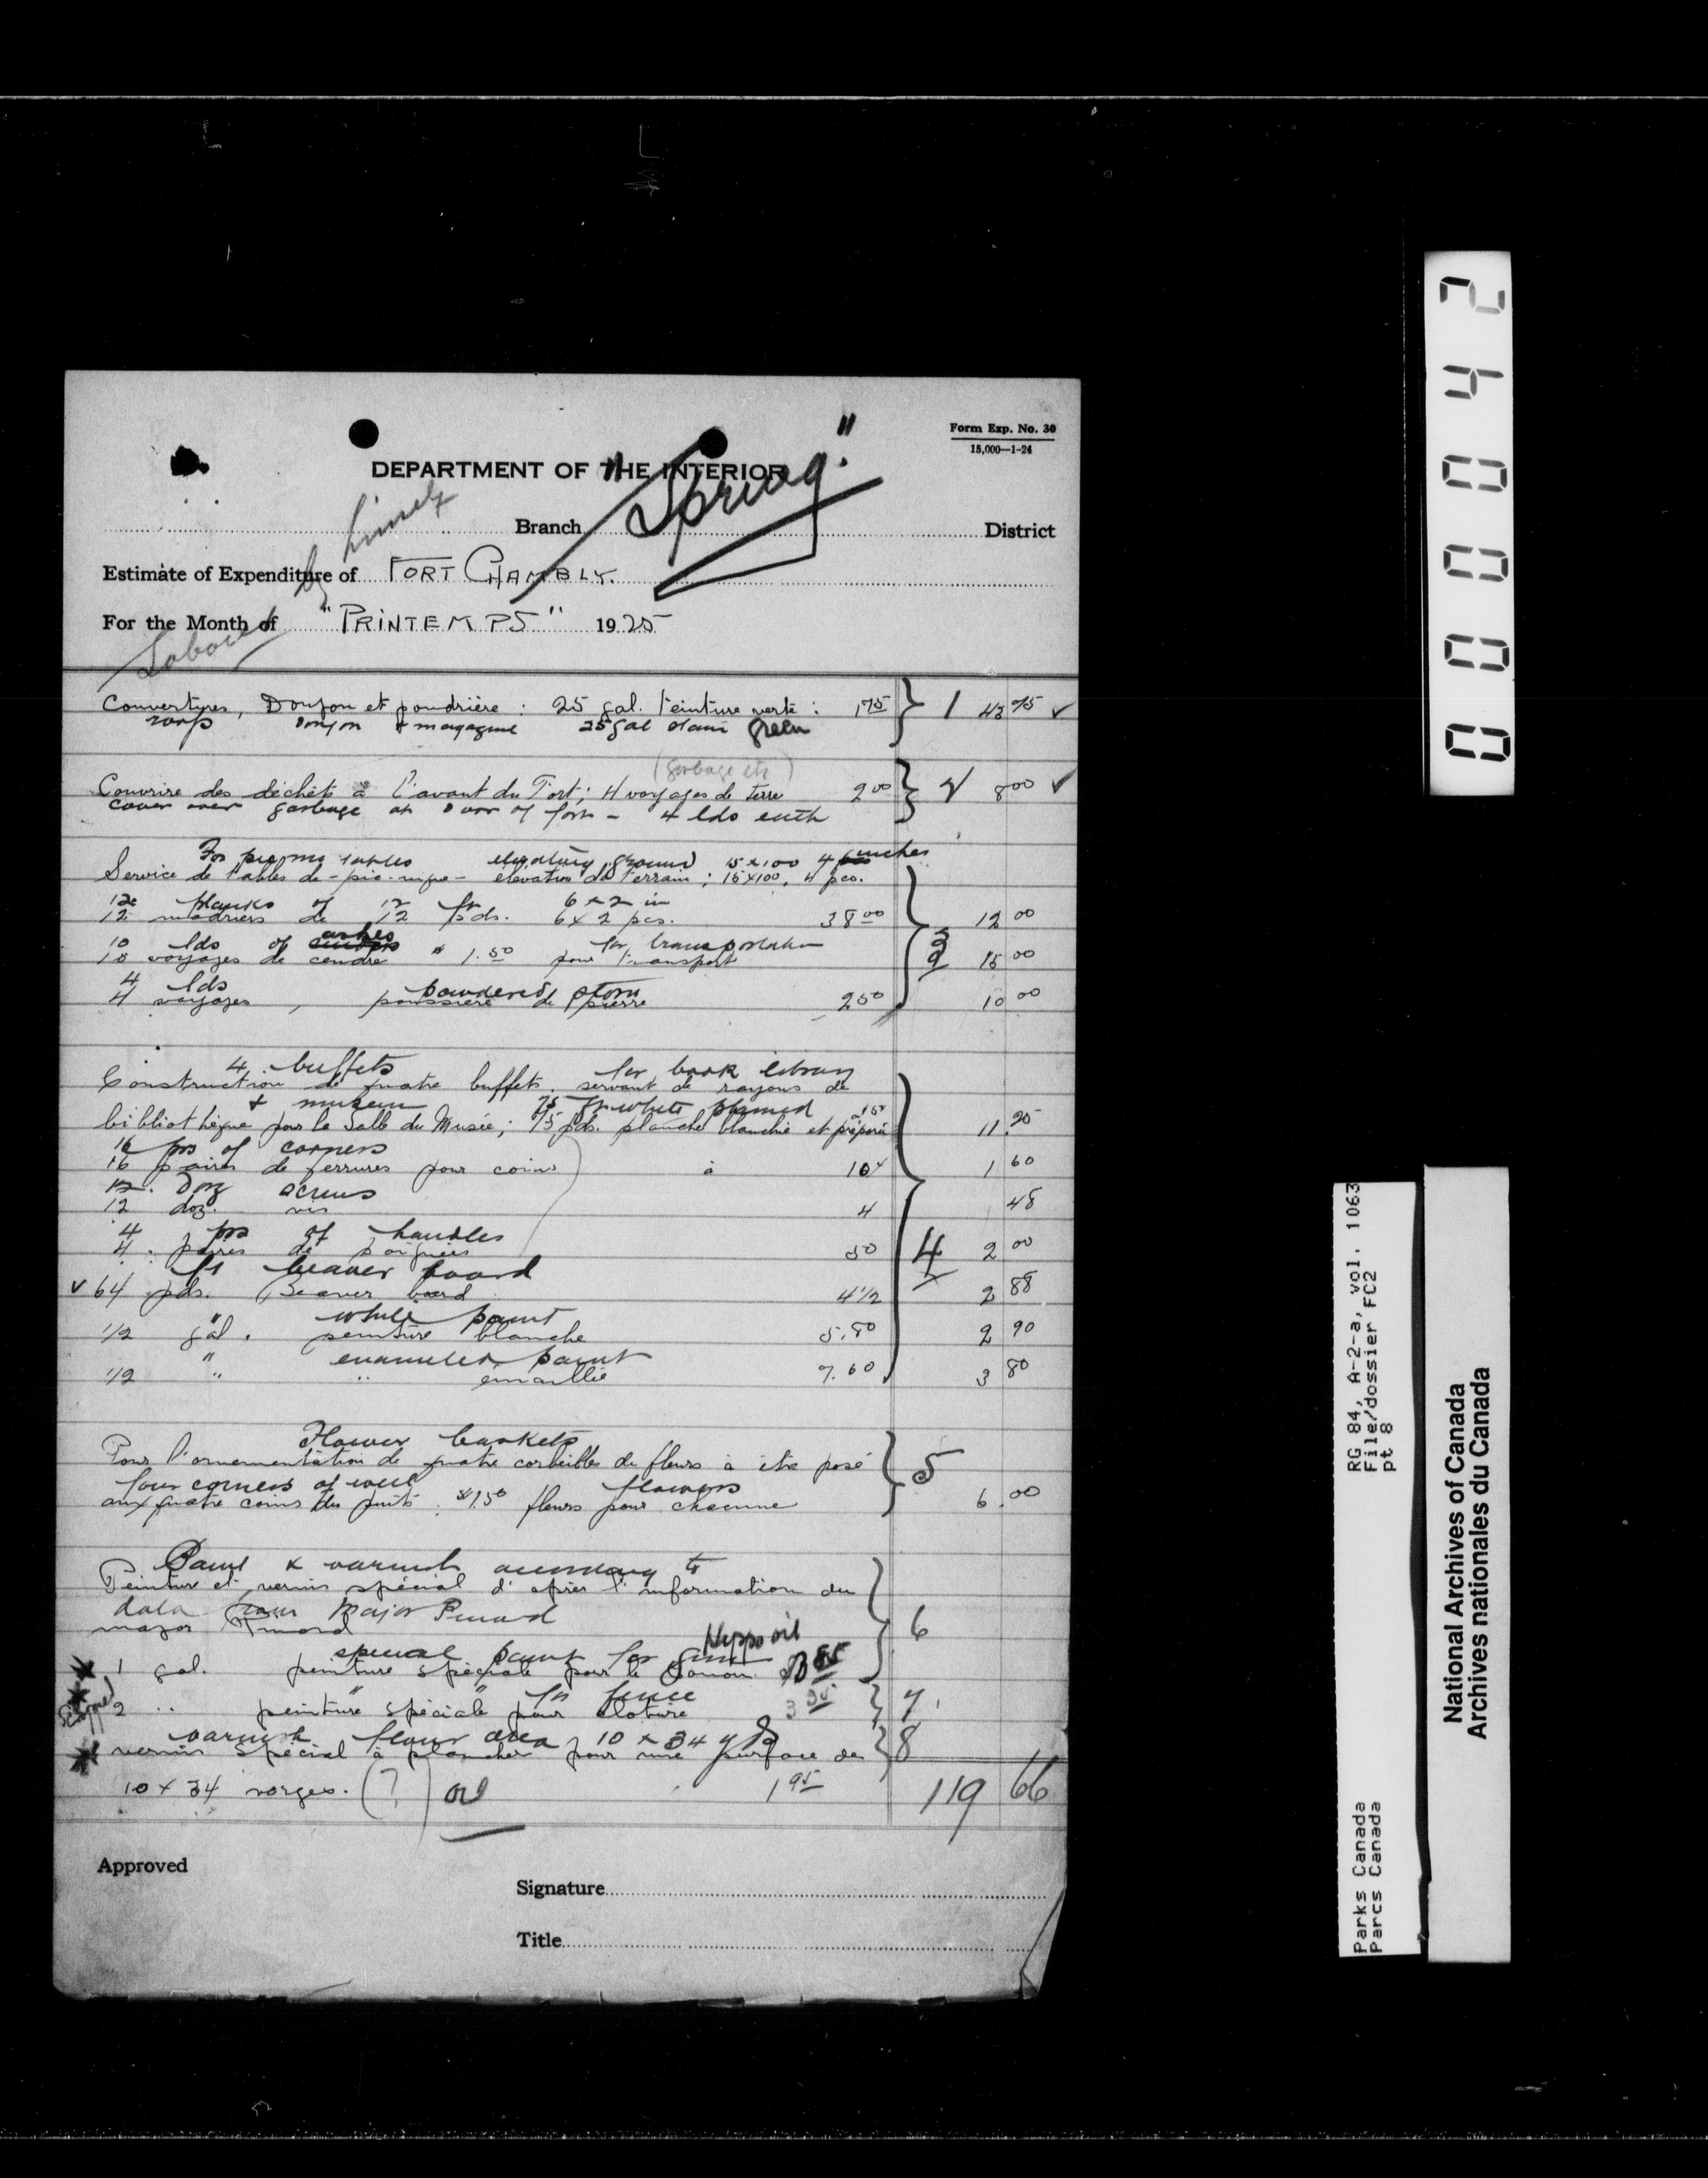 Form Exp. No. 30
15,000—1-24
DEPARTMENT OF THE INTERIOR
"Spring"
Branch
District
Estimate of Expenditure of FORT CHAMBLY.
For the Month of "PRINTEMPS" 1925
Labour by
Couvertures, Donjon et poudrière : 25 gal. teinture verte : 1 75 } 1 43 75 ✓
roofs donjon + magazine 25 gal stain green
(garbage etc)
Couvrire des déchêts à l'avant du Fort; 4 voyages de terre 2 00 } 2 8 00 ✓
cover over garbage at door of fort - 4 lds earth
For picnic tables elevating ground 15 x 100 4 inches
Service de tables de-pic-nique- élevation du terrain ; 15 x 100, 4 pcs.
12 planks of 12 ft 6 x 2 in
12 madriers de 12 pds. 6 x 2 pcs. 38 00 12 00
10 lds of ashes for transportation
10 voyages de cendre $ 1.50 pour transport 3 15 00
4 lds powdered stone
4 voyages , poussière de pierre 2 50 10 00
4 buffets for book library
Construction de quatre buffets. servant de rayons de
+ museum 75 ft white planed
bibliothèque pour la Salle du Musée; 75 pds. planche blanchie et préparée 15 11.25
16 prs of corners
16 paires de ferrures pour coins à 10 1 60
12. doz screws
12 doz. vis 4 48
4 prs of handles
4. paires de poignées 50 4 2 00
ft beaver board
✓ 64 pds. Beaver board 4 1/2 2 88
" white paint
1/2 gal. peinture blanche 5.80 2 90
" enameled paint
1/2 " " émaillié 7.60 3 80
Flower baskets
Pour l'ornementation de quatre corbeilles de fleurs à être posé } 5
four corners of well flowers
aux quatre coins du puits. $1.50 fleurs pour chacune 6.00
Paint & varnish according to
Peinture et vernis spécial d'après l'information du
data from Major Pinard
major } 6
special paint for Nuppo oil
1 gal. peinture spéciale pour le 85
" " for fence
2 .. peinture spéciale pour cloture 3 35 } 7.
varnish floor area 10 x 34 yds
vernis spécial à plancher pour une surface de } 8
10 x 34 verges. (?) 1 95 119 66
Approved
Signature
Title
0 0 0 0 4 2
RG 84, A-2-a, vol. 1063
File/dossier FC2
pt 8
Parks Canada
Parcs Canada
National Archives of Canada
Archives nationales du Canada